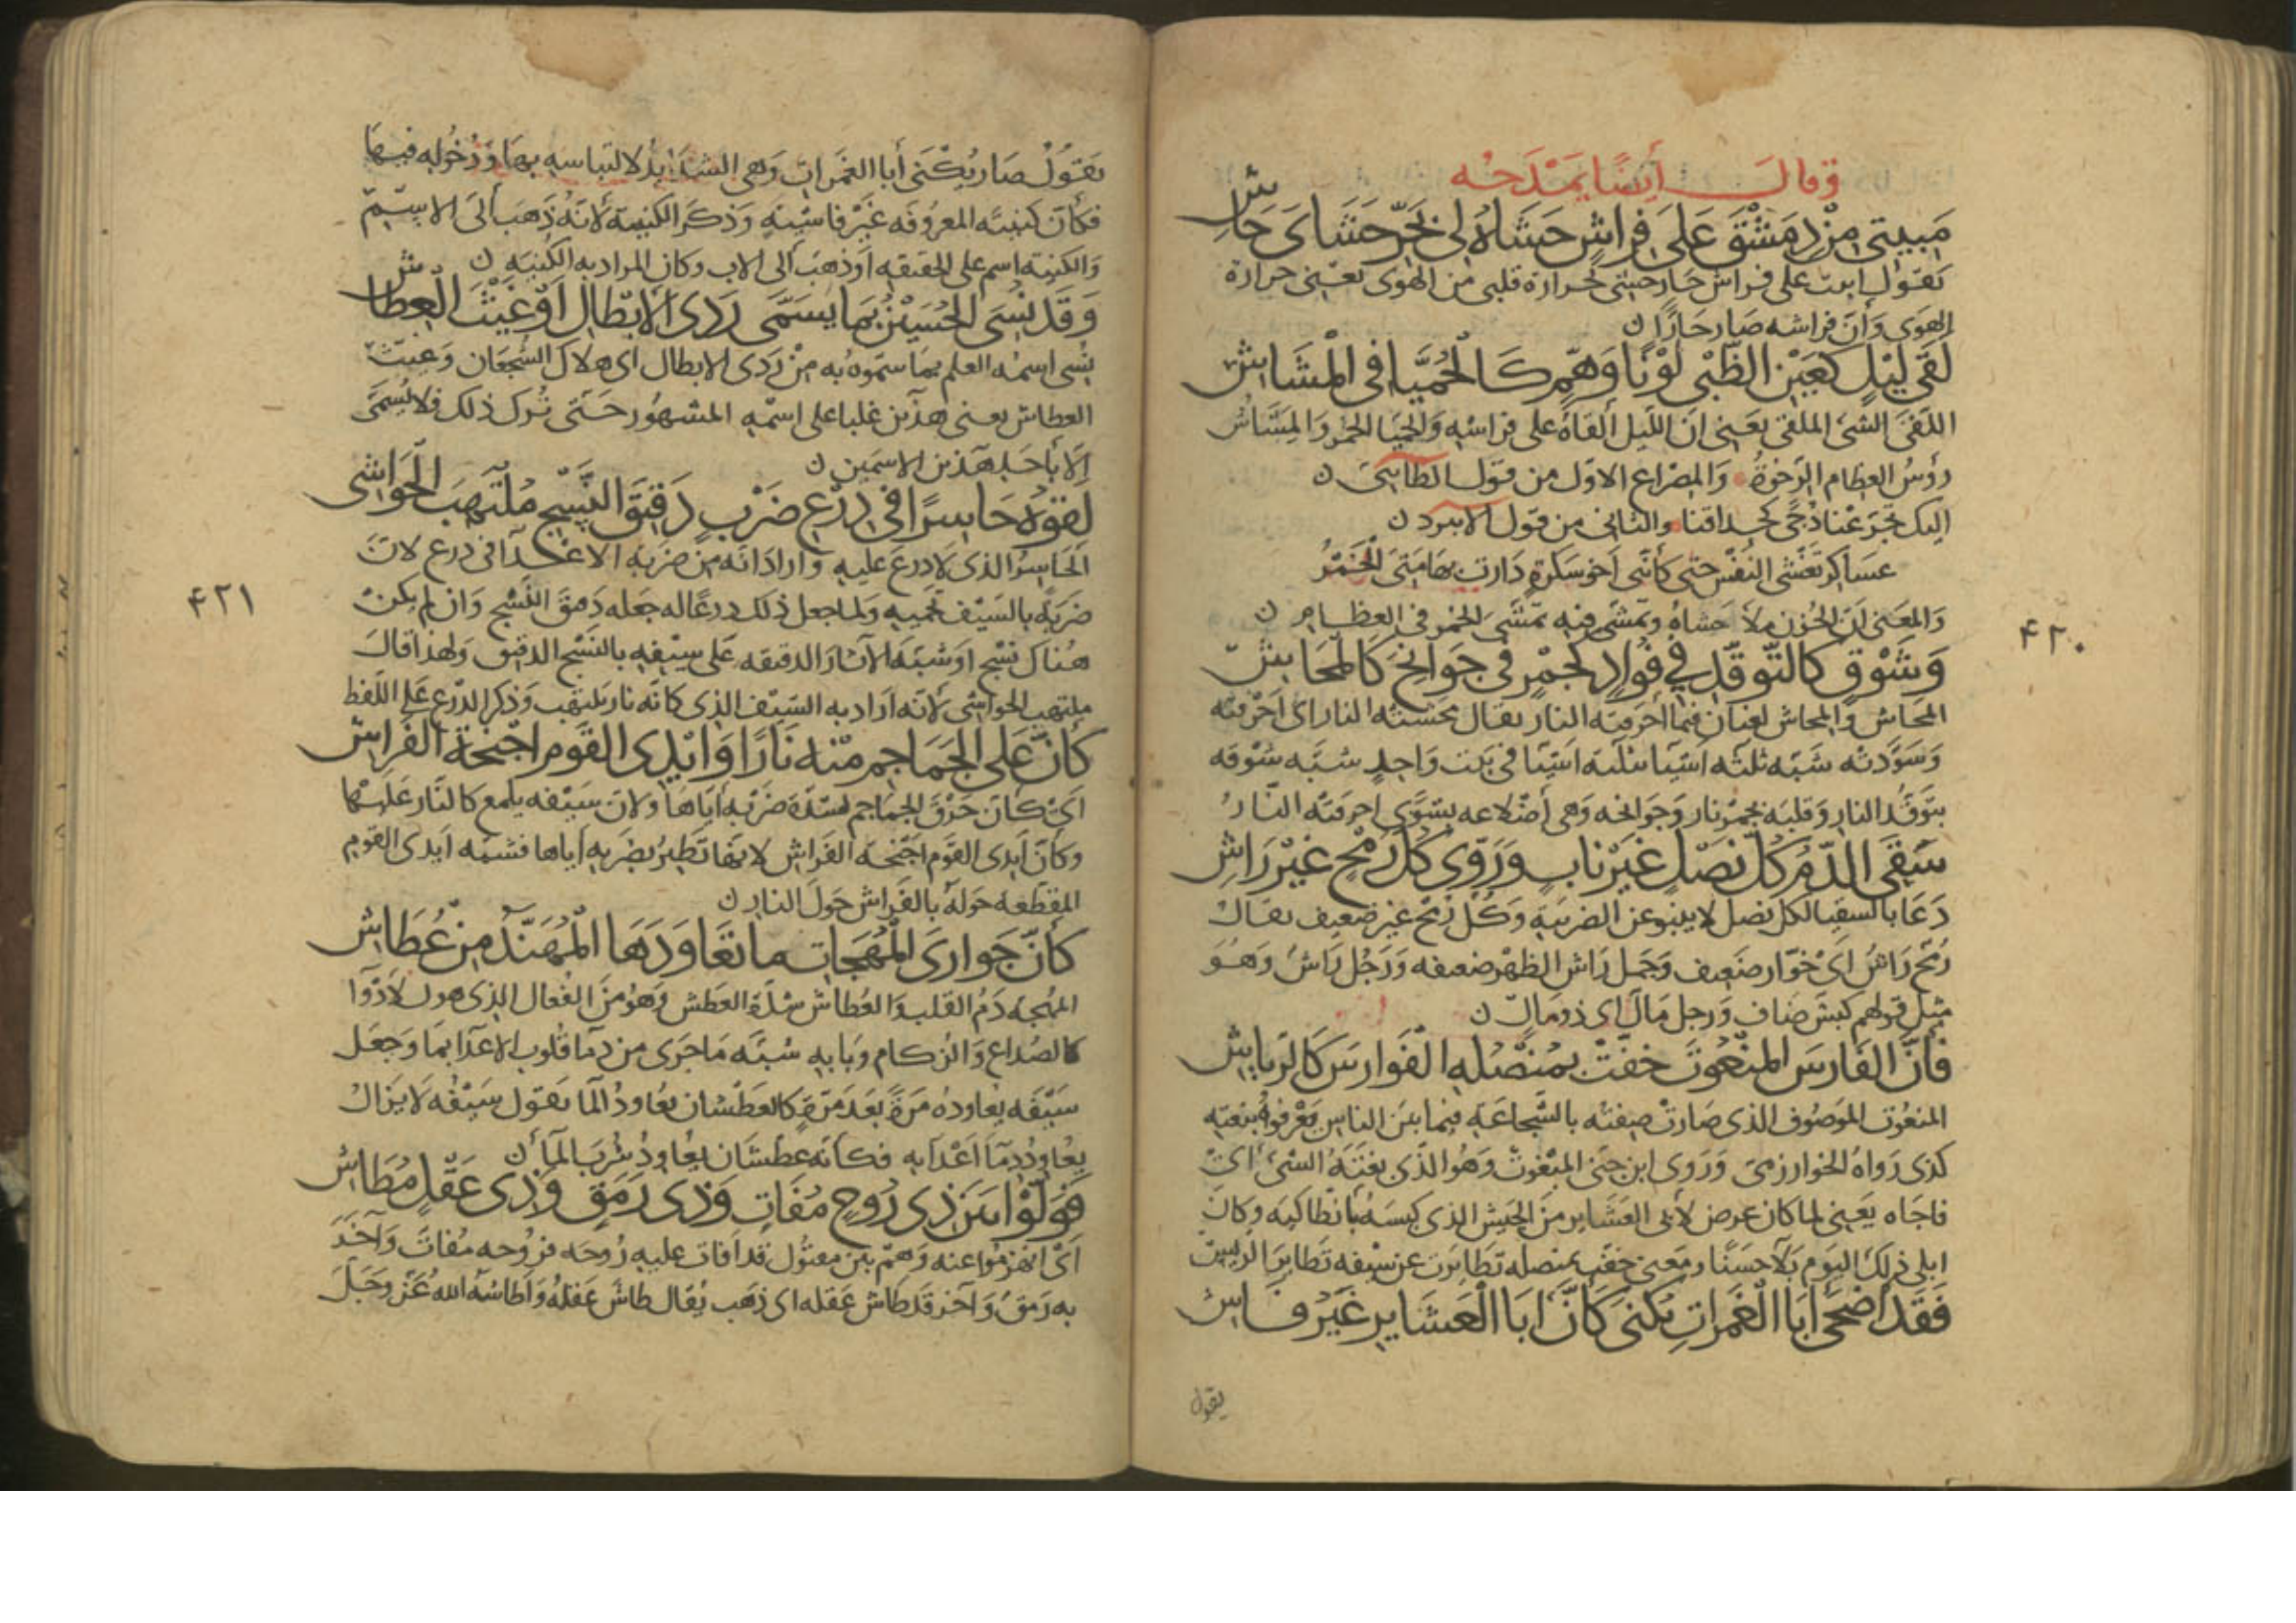 وقال أيضًا يمدحه
مَبيتي مِن دِمَشْقَ عَلَى فِراشٍ حَشَاهُ لي بحَرِّ حَشَايَ حَاشِ
يَقول ابيت على فراش حارٍ حشى بحرارة قلبى من الهوى يعنى حرارة
الهوى وَأنّ فراشه صار حَارًا ن
لَقَى لَيْلٍ كعَيْن الظّبْى لَوْنًا وَهَمٍّ كَالحُمَيّا فى المُشَاشِ
اللقى الشئ الملقى يعنى انّ الليل ألقاهُ على فراشه وَالحميّا الخمر وَالمشاش
رؤسُ العظام الرخوة وَالمصراع الاوّل من قول الطائى ن
اليك تجرعنا دجًى كحداقنا والثانى من قول الابيرد ن
عسَاكر تغشى النفس حتى كأنّنى اخو سَكرة دارت بهامتى الخمرُ
وَالمعنى انّ الحزن ملأ حشاهُ وتمشّى فيه تمشّى الخمر فى العظام ن
وَشَوْقٍ كَالتّوَقّدِ فِي فُوَادٍ كَجَمْرٍ فى جَوَانِحَ كَالمحَاشِ
المحَاش وَالمحاش لغتان فيما احرقته النار يقال محشته النار اى احرقته
وَسَوّدته شبّه ثلثه اشيا بثلثه اشيا فى بيت وَاحدٍ شبّه شوقه
بتوقّد النار وَقلبَه بجمر نار وَجوانحه وَهى أضلاعه بشوًى احرقته النّارُ
سَقَى الدّمُ كلّ نَصْلٍ غَيْرَ نابٍ وَرَوّى كُلَّ رُمْحٍ غَيْرَ رَاشِ
دَعَا بالسقيا لكل نصل لا ينبو عن الضريبَة وَكلّ رمح غير ضعيف يقال
رُمح رَاشٌ اىْ خوّار ضعيف وَجمل رَاش الظهر ضعيفه وَرَجُل رَاش وَهُوَ
مثل قولهم كبش صَاف وَرجل مالٌ اى ذو مالٍ ن
فَانَّ الفَارسَ المنْعُوتَ خفّتْ بمُنْصُلِهِ الفَوارسُ كَالرّياشِ
المنعوت الموصُوف الذى صَارتْ صفته بالشّجاعَة فيما بين الناس يَعْرفونه بنعته
كذى رَواهُ الخوارزمى وَرَوى ابن جنى المبْغوت وَهُوَ الذى بغتَه الشئ اىْ
فاجاه يعنى لما كان عرض لأبى العشاير من الجيش الذى كبسَه بانطاكيه وكان
ابلى ذلك اليَوم بَلاً حسنًا ومعنى خفت بمنصله تَطايَرت عن سيفه تَطايرَ الريش
فَقَدْ أَضْحَى أبَا الغَمَراتِ يُكنَى كَأَنَّ ابَا العَشَايِرِ غَيْرُ فَاشِ
يقول
۴۲۰
يَقولُ صَار يُكْنَى أبا الغمرات وَهى الشدايد لالتباسه بها وَدُخُوله فيها
فكأنّ كنيته المعروفه غَيْر فاشيةٍ وَذكَر الكنيةَ لأنّهُ ذَهَبَ الى الاسم
وَالكنية اسم على الحقيقه اوْ ذهَبَ الى الاب وكان المراد به الكنيه ن
وَقَدْ نُسِىَ الحُسَيْنُ بمَا يُسَمَّى رَدَى الابْطَالِ اوْ غَيْثَ العِطاشِ
نسى اسمه العلم بما سمّوه به مِنْ رَدَى الابطال اى هلاك الشجعان وَغيث
العطاش يعنى هذين غلبا على اسمِه المشهُور حَتّى تُرك ذلك فلا يسمَّى
الا بأحَد هذين الاسمين ن
لَقُوهُ حَاسِرًا فى دِرْعِ ضَرْبٍ دَقيقِ النَّسْجِ مُلْتَهِبِ الحَوَاشِى
الحَاسِرُ الذى لَا درع عَليهِ وَارادَ انّه مِن ضربه الاعدآ فى درع لانّ
ضَربَه بالسَيْف يحميهِ وَلمَا جعل ذلك درعًا له جَعَله دَقيقَ النّسْج وَان لم يكنْ
هُناكَ نَسْج اوْ شبّه الآثارَ الدقيقه عَلى سيْفِه بالنسْج الدقيق وَلهذا قالَ
ملتهب الحواشى لأنّه ارَاد به السَيْف الذى كأنّه نار يلتهب وَذكر الدّرع على اللفظ
كأنَّ عَلى الجَمَاجِمِ مِنْه نَارًا وَايْدِى القَومِ اجْنِحَةُ الفَراشِ
اىْ كأنّ حَرَقَ الجماجم لشدّة ضَرْبِه ايّاهَا وَلانّ سَيْفه يلمع كالنّار عَليها
وكأنّ أيدى القوم اجْنحة الفَراش لانها تَطيرُ بضَربه أياها فشبّه ايدى القوم
المقطّعه حَوْله بالفراش حَولَ النار ن
كَأَنَّ جَوارىَ المُهَجَاتِ مَا تُعَاوِدُهَا المُهَنَّد مِنْ عُطَاشِ
المُهجه دَمُ القلب وَالعُطاش شدّة العطش وَهُوَ مِن الفُعال الذى هو للادْوَا
كالصُداع وَالزكام وَبابهِ شبّه مَا جرَى من دمآ قلوب الاعدآ بمآ وَجَعَل
سَيْفَه يعاودُه مَرّةً بَعْد مَرّةٍ كالعَطشان يُعاودُ المآ يَقول سَيْفه لَا يَزال
يعُاوِدُ دِمآءَ اعْدآيِه فكأنه عطشَان يُعاودُ شُرْبَ المآءِ ن
فَوَلَّوْا بَيْنَ ذِى رُوحٍ مُفَاتٍ وَذِى رَمَقٍ وَذِى عَقْلٍ مُطَاشِ
اىْ انهزمُوا عنه وَهمْ بَيْن مقتُول قد افات عليه رُوحه فرُوحه مُفات وَآخَر
به رَمق وَآخر قد طاش عَقله اى ذهَب يُقال طاش عَقْلهُ وَاطاشهُ الله عَزّ وَجَلّ
۴۲۱